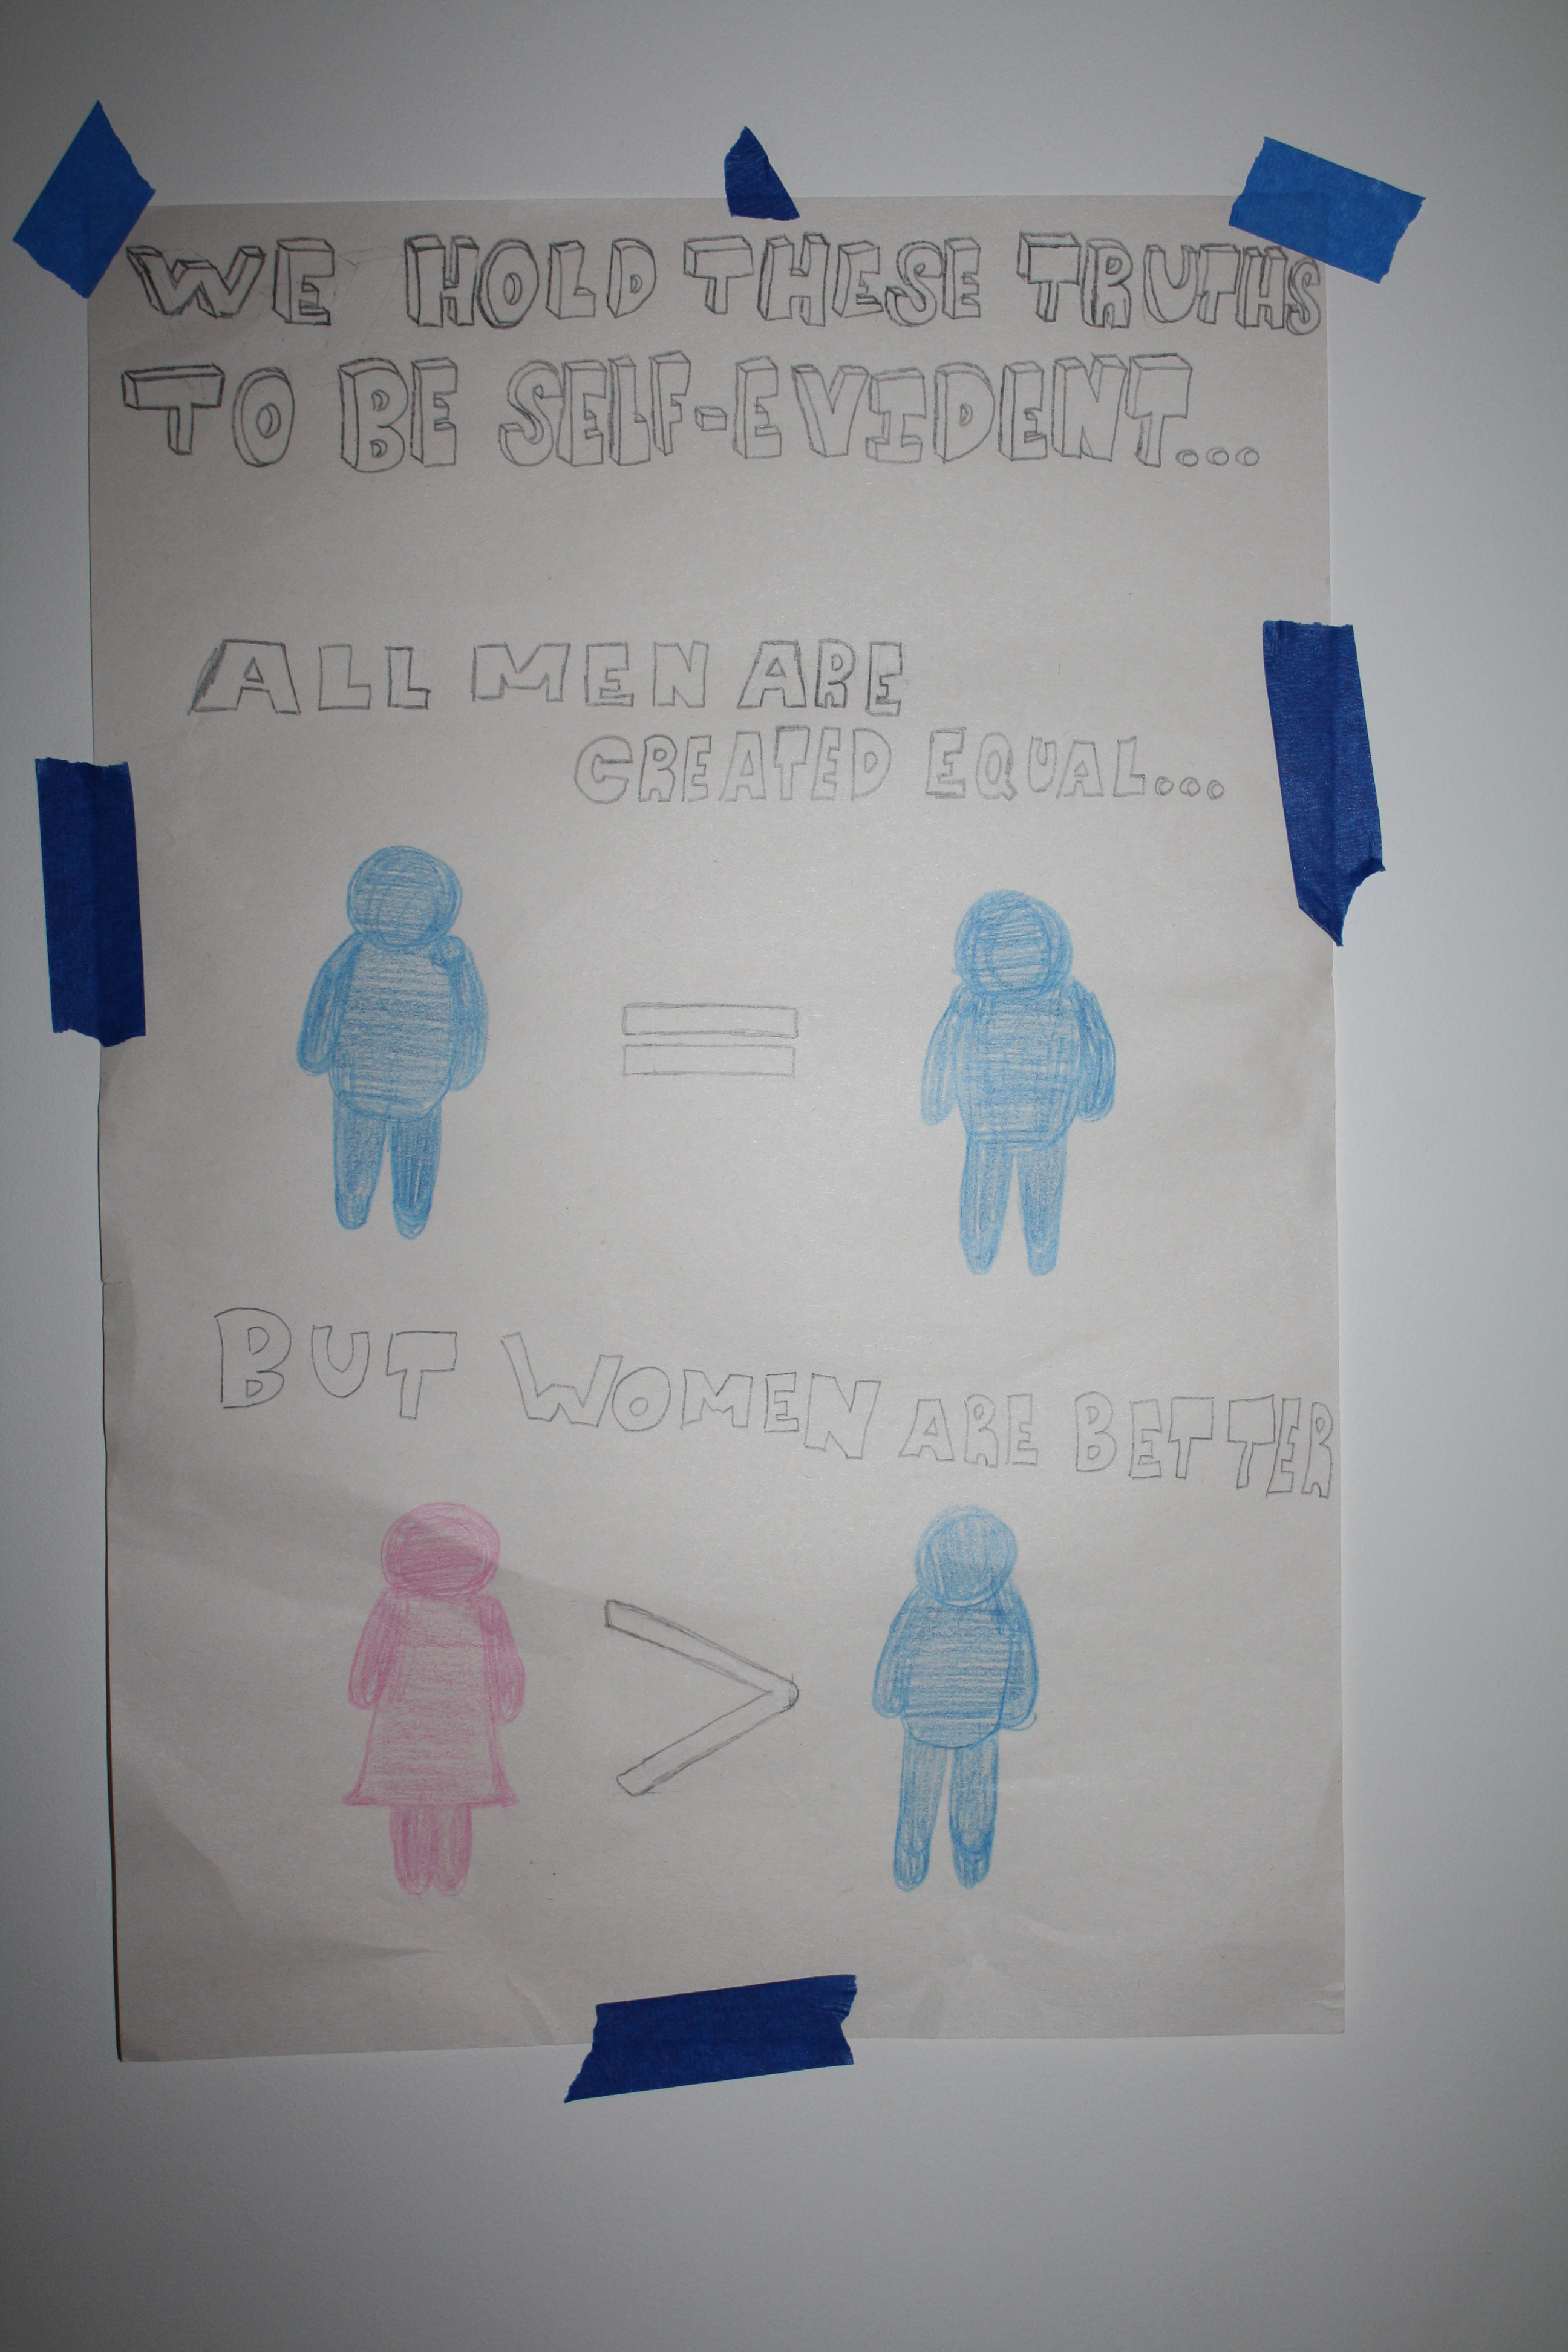 WE HOLD THESE TRUTHS
TO BE SELF-EVIDENT...
ALL MEN ARE
CREATED EQUAL...
=
BUT WOMEN ARE BETTER
>